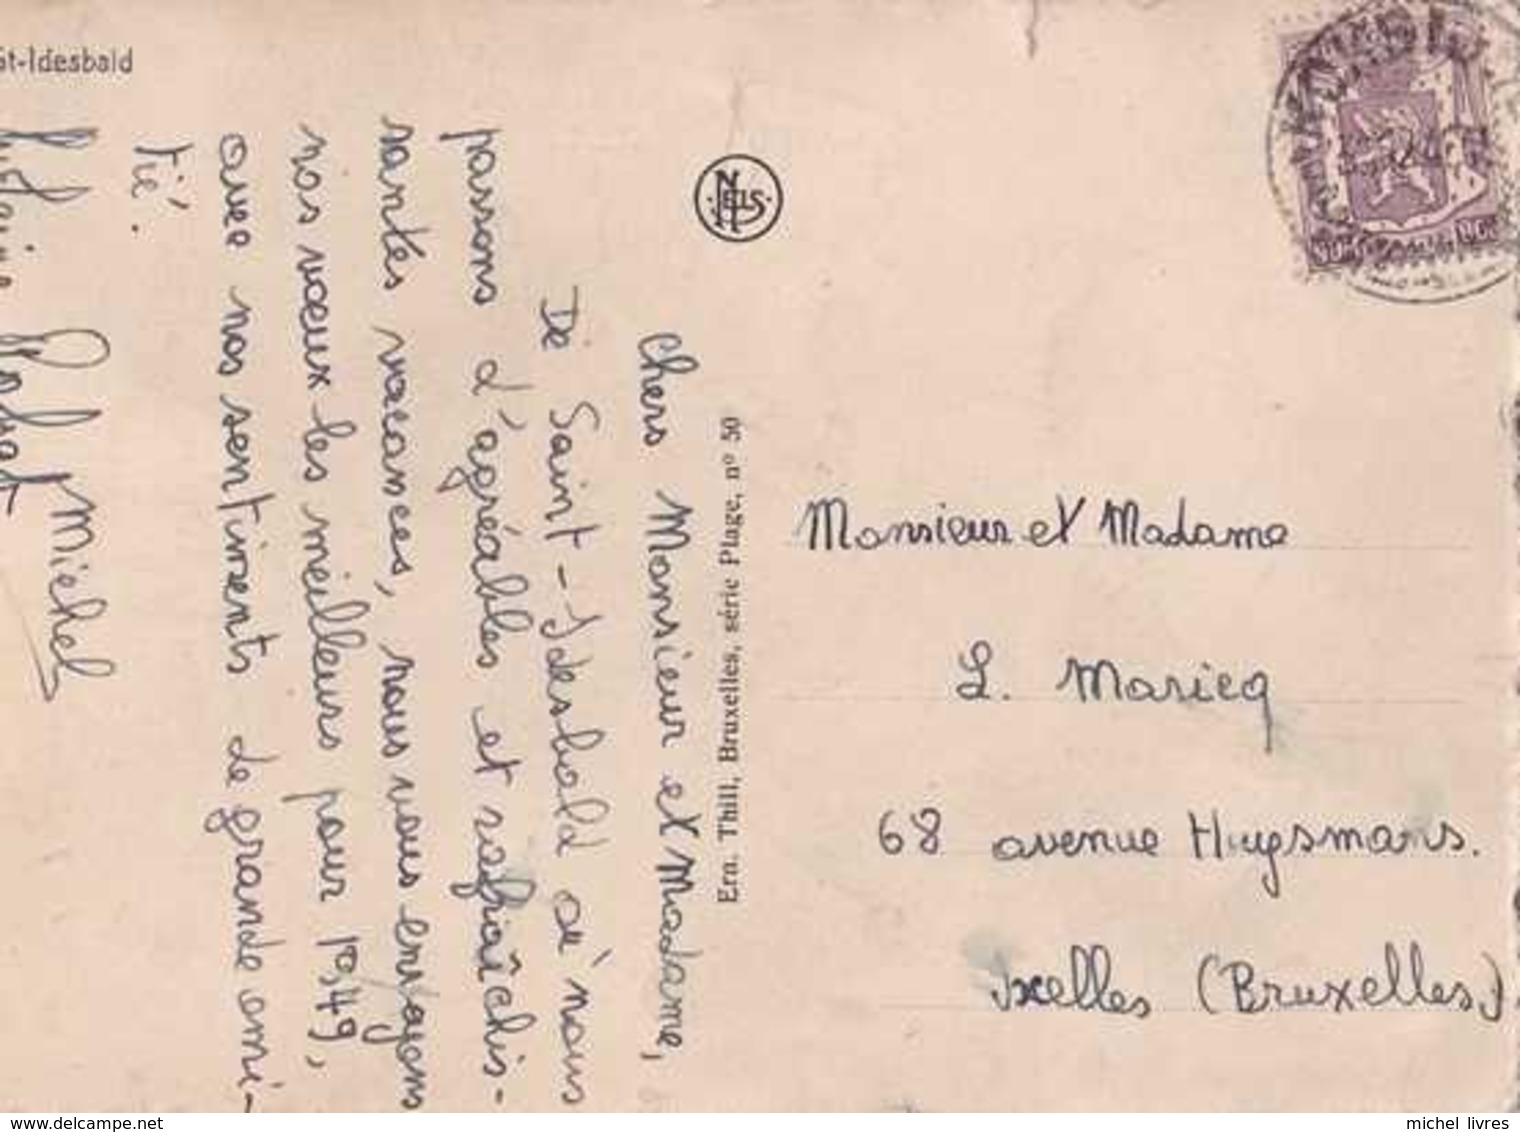 St-Idesbald
Chers Monsieur et Madame,
De Saint-Idesbald où nous
passons d'agréables et rafraîchis-
santes vacances, nous vous envoyons
nos vœux les meilleurs pour 1949,
avec nos sentiments de grande ami-
tié.
Michel
NELS
Ern. Thill, Bruxelles, série Plage, n° 50
Monsieur et Madame
L. Maricq
68 avenue Huysmans.
Ixelles (Bruxelles)
michel livres